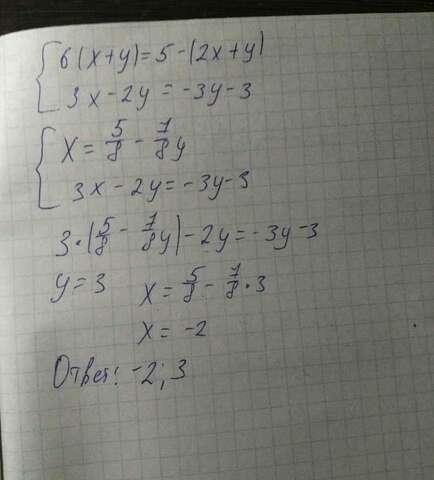 6(x+y)=5-(2x+y)
3x-2y=-3y-3
x=5/8-7/8y
3x-2y=-3y-3
3·(5/8-7/8y)-2y=-3y-3
y=3 x=5/8-7/8·3
x=-2
Ответ: -2; 3